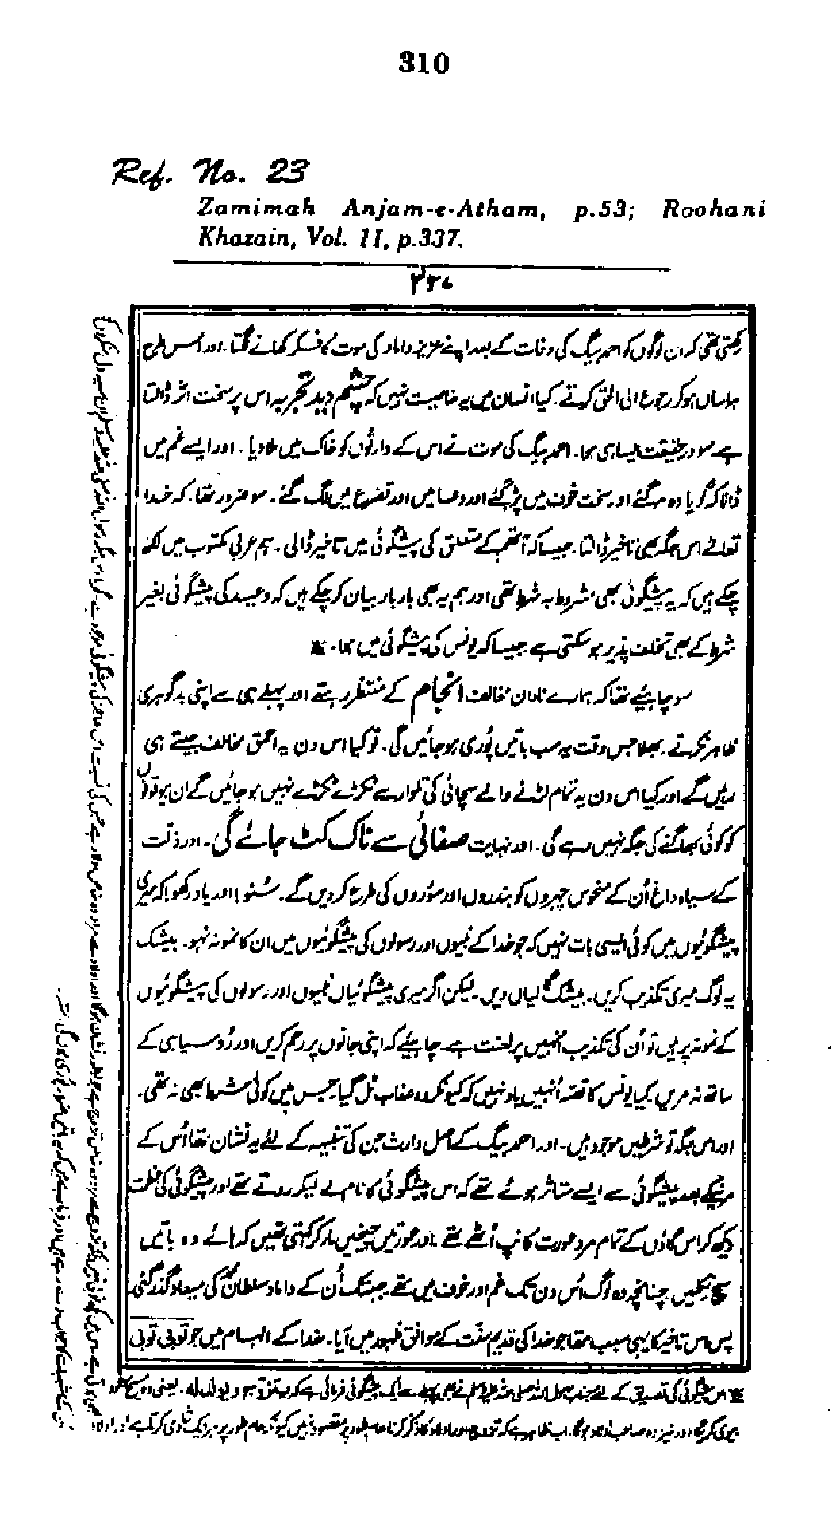 310
Ref. No. 23
Zamimah Anjam-e-Atham, p.53; Roohani
Khazain, Vol. 11, p.337.
۳۳۷
رکھتی تھی کہ ان لوگوں کو احمد بیگ کی وفات کے بعد اپنے عزیز داماد کی موت کا فکر کھانے لگتا اور اس طرح
ہراساں ہو کر رجوع الی الحق کرتے۔ کیا انسان میں یہ خاصیت نہیں کہ چشم دید تجربہ اس پر سخت اثر ڈالتا
ہے سو درحقیقت ایسا ہی ہوا۔ احمد بیگ کی موت نے اس کے وارثوں کو خاک میں ملا دیا۔ اور ایسے غم میں
ڈالا کہ گویا وہ مر گئے اور سخت خوف میں پڑ گئے اور دعا میں اور تضرع میں لگ گئے۔ سو ضرور تھا۔ کہ خدا
تعالے اس جگہ بھی تاخیر ڈالتا۔ جیسا کہ آتھم کے متعلق کی پیشگوئی میں تاخیر ڈالی۔ ہم عربی مکتوب میں لکھ
چکے ہیں کہ یہ پیشگوئی بھی مشروط بہ شرط تھی اور ہم یہ بھی بار بار بیان کر چکے ہیں کہ وعید کی پیشگوئی بغیر
شرط کے بھی تخلف پذیر ہو سکتی ہے جیسا کہ یونس کی پیشگوئی میں ہوا۔
سو چاہیئے تھا کہ ہمارے نادان مخالف انجام کے منتظر رہتے اور پہلے ہی سے اپنی بد گوہری
ظاہر نہ کرتے۔ بھلا جس وقت یہ سب باتیں پوری ہو جائیں گی۔ تو کیا اس دن یہ احمق مخالف جیتے ہی
رہیں گے اور کیا اس دن یہ تمام لڑنے والے سچائی کی تلوار سے ٹکڑے ٹکڑے نہیں ہو جائیں گے ان بیوقوفوں
کو کوئی بھاگنے کی جگہ نہیں رہے گی۔ اور نہایت صفائی سے ناک کٹ جائے گی۔ اور ذلت
کے سیاہ داغ اُن کے منحوس چہروں کو بندروں اور سؤروں کی طرح کر دیں گے۔ سُنو! اور یاد رکھو! کہ میری
پیشگوئیوں میں کوئی ایسی بات نہیں کہ جو خدا کے نبیوں اور رسولوں کی پیشگوئیوں میں ان کا نمونہ نہ ہو۔ بیشک
یہ لوگ میری تکذیب کریں۔ بیشک گالیاں دیں۔ لیکن اگر میری پیشگوئیاں نبیوں اور رسولوں کی پیشگوئیوں
کے نمونہ پر ہیں تو اُن کی تکذیب انہیں پر لعنت ہے چاہیئے کہ اپنی جانوں پر رحم کریں اور رُو سیاہی کے
ساتھ نہ مریں کیا یونس کا قصہ اُنہیں یاد نہیں کہ کیونکر وہ عذاب ٹل گیا جس میں کوئی شرط بھی نہ تھی۔
اور اس جگہ تو شرطیں موجود ہیں۔ اور احمد بیگ کے اصل وارث جن کی تنبیہ کے لئے یہ نشان تھا اُس کے
مرنیکے بعد پیشگوئی سے ایسے متاثر ہوئے تھے کہ اس پیشگوئی کا نام لے لیکر روتے تھے اور پیشگوئی کی عظمت
دیکھ کر اس گاؤں کے تمام مرد عورت کانپ اُٹھے تھے اور عورتیں چیخیں مار کر کہتی تھیں کہ ہائے وہ باتیں
سچ نکلیں چنانچہ وہ لوگ اُس دن تک غم اور خوف میں تھے جب تک اُن کے داماد سلطان محمد کی میعاد گذر گئی
پس اس تاخیر کا یہی سبب تھا جو خدا کی قدیم سنت کے موافق ظہور میں آیا۔ خدا کے الہام میں جو توبی توبی
اس پیشگوئی کی تصدیق کے لئے جناب رسول اللہ صلی اللہ علیہ وسلم نے بھی پہلے سے ایک پیشگوئی فرمائی ہے کہ یتزوج و یولد لہ۔ یعنی وہ مسیح موعود
بیوی کریگا اور نیز وہ صاحب اولاد ہوگا۔ اب ظاہر ہے کہ تزوج اور اولاد کا ذکر کرنا عام طور پر مقصود نہیں کیونکہ عام طور پر ہر ایک شادی کرتا ہے اور اولاد